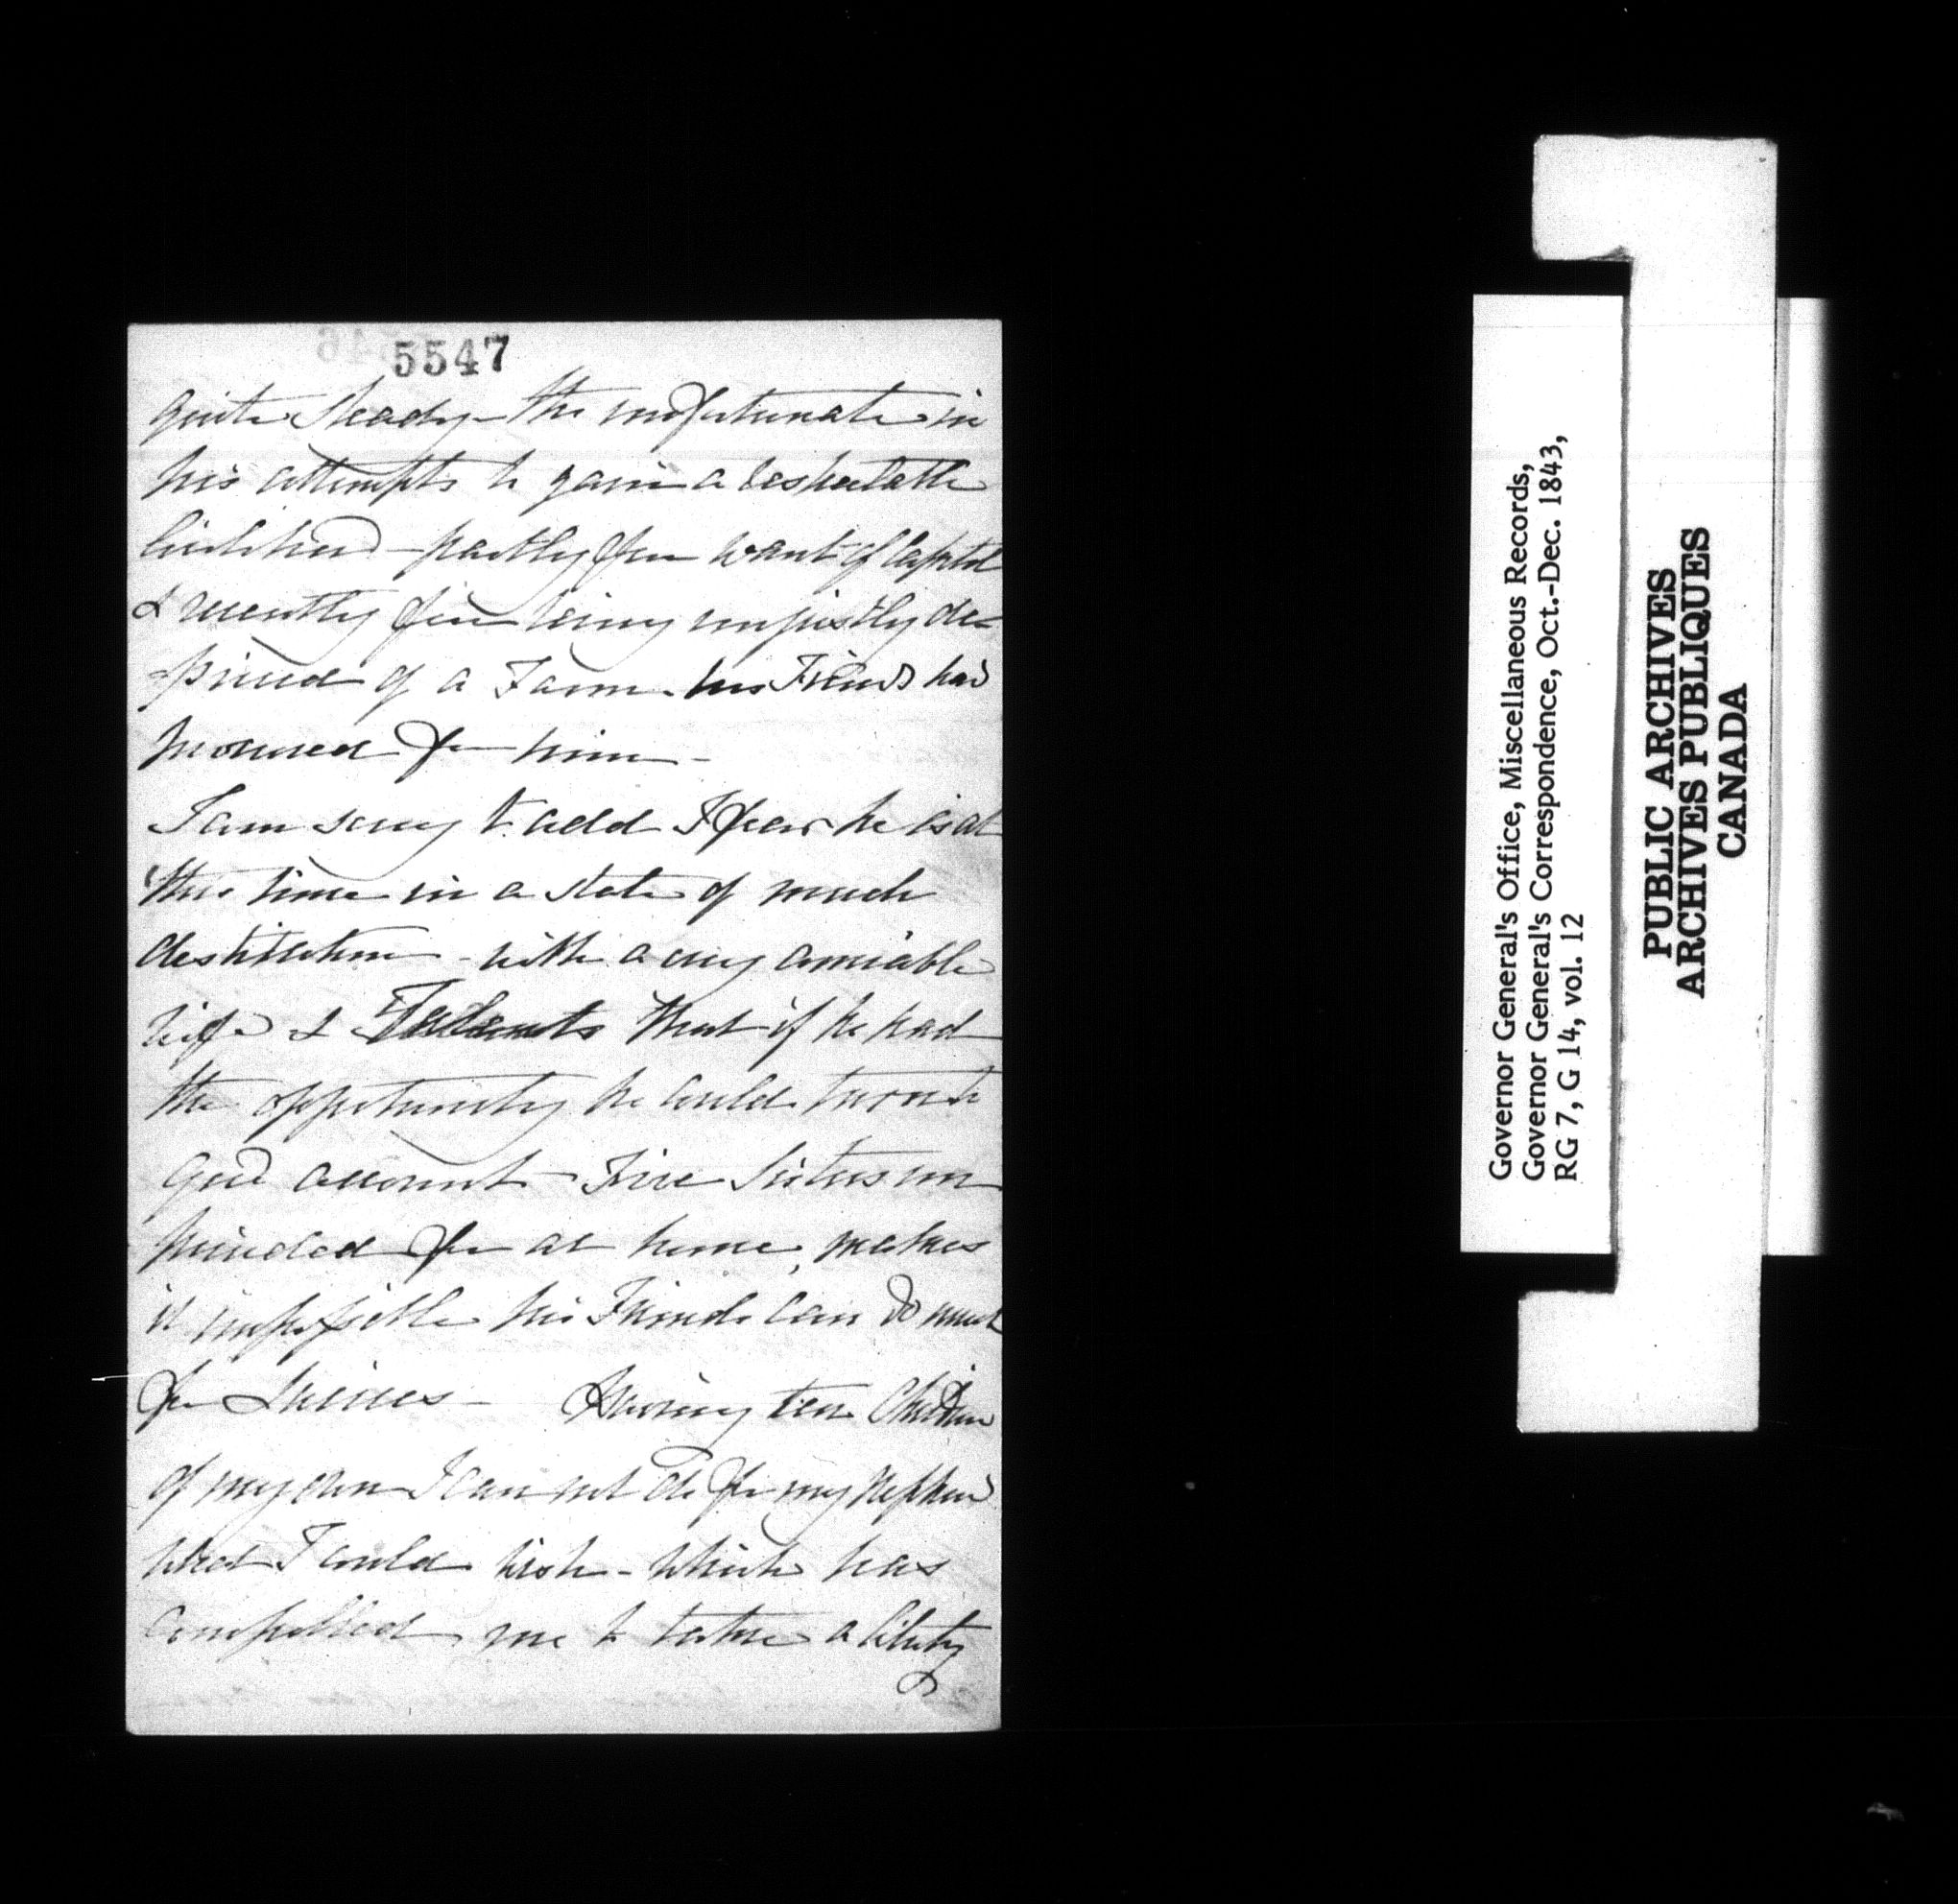 5547
quite steady - tho unfortunate in
his attempts to gain a respectable
livelihood - partly for want of Capital
& recently for being unjustly de-
-prived of a Farm his Friends had
procured for him -
I am sorry to add I fear he is at
this time in a state of much
destitution - with a very amiable
wife & Talents that if he had
the opportunity he could turn to
good account - Five Sisters un
provided for at home, makes
it impossible his Friends can do much
for - Having ten Children
of my own I can not do for my Nephew
what I could wish - which has
compelled me to take a liberty
Governor General's Office, Miscellaneous Records,
Governor General's Correspondence, Oct.-Dec. 1843,
RG 7, G 14, vol. 12
PUBLIC ARCHIVES
ARCHIVES PUBLIQUES
CANADA